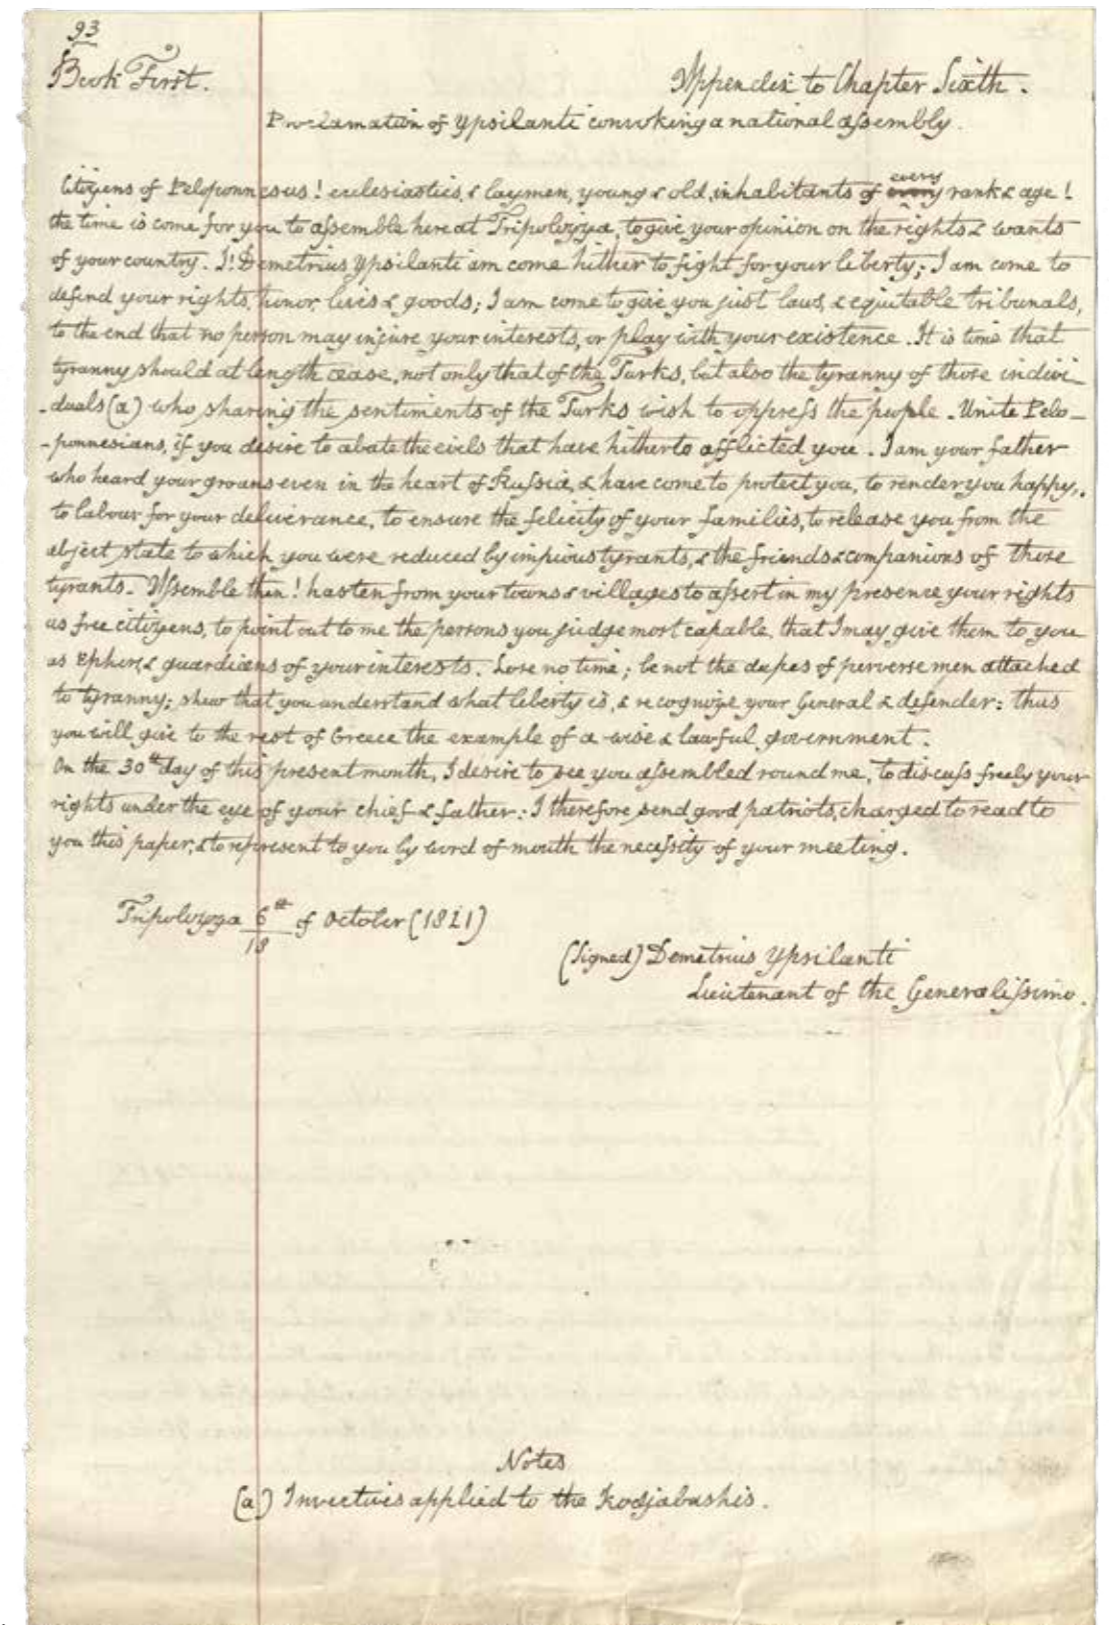 93
Book First.
Appendix to Chapter Sixth.
Proclamation of Ypsilanti convoking a national assembly.
Citizens of Peloponnesus! ecclesiastics & laymen, young & old, inhabitants of every rank & age!
the time is come for you to assemble here at Tripolizza, to give your opinion on the rights & wants
of your country. I! Demetrius Ypsilanti am come hither to fight for your liberty; I am come to
defend your rights, honor, lives & goods; I am come to give you just laws, & equitable tribunals,
to the end that no person may injure your interests, or play with your existence. It is time that
tyranny should at length cease, not only that of the Turks, but also the tyranny of those indivi-
-duals (a) who sharing the sentiments of the Turks wish to oppress the people. Unite Pelo-
-ponnesians, if you desire to abate the evils that have hitherto afflicted you. I am your father
who heard your groans even in the heart of Russia, & have come to protect you, to render you happy,
to labour for your deliverance, to ensure the felicity of your families, to release you from the
abject state to which you were reduced by impious tyrants, & the friends & companions of those
tyrants. Assemble then! hasten from your towns & villages to assert in my presence your rights
as free citizens, to point out to me the persons you judge most capable, that I may give them to you
as Ephors, & guardians of your interests. Lose no time; be not the dupes of perverse men attached
to tyranny; shew that you understand what liberty is, & recognize your General & defender: thus
you will give to the rest of Greece the example of a wise & lawful government.
On the 30th day of this present month, I desire to see you assembled round me, to discuss freely your
rights under the eye of your chief & father: I therefore send good patriots, charged to read to
you this paper, & to represent to you by word of mouth the necessity of your meeting.
Tripolizza 6th/18 of October (1821)
(signed) Demetrius Ypsilanti
Lieutenant of the Generalissimo.
Notes
(a) Invectives applied to the Kodjabashis.